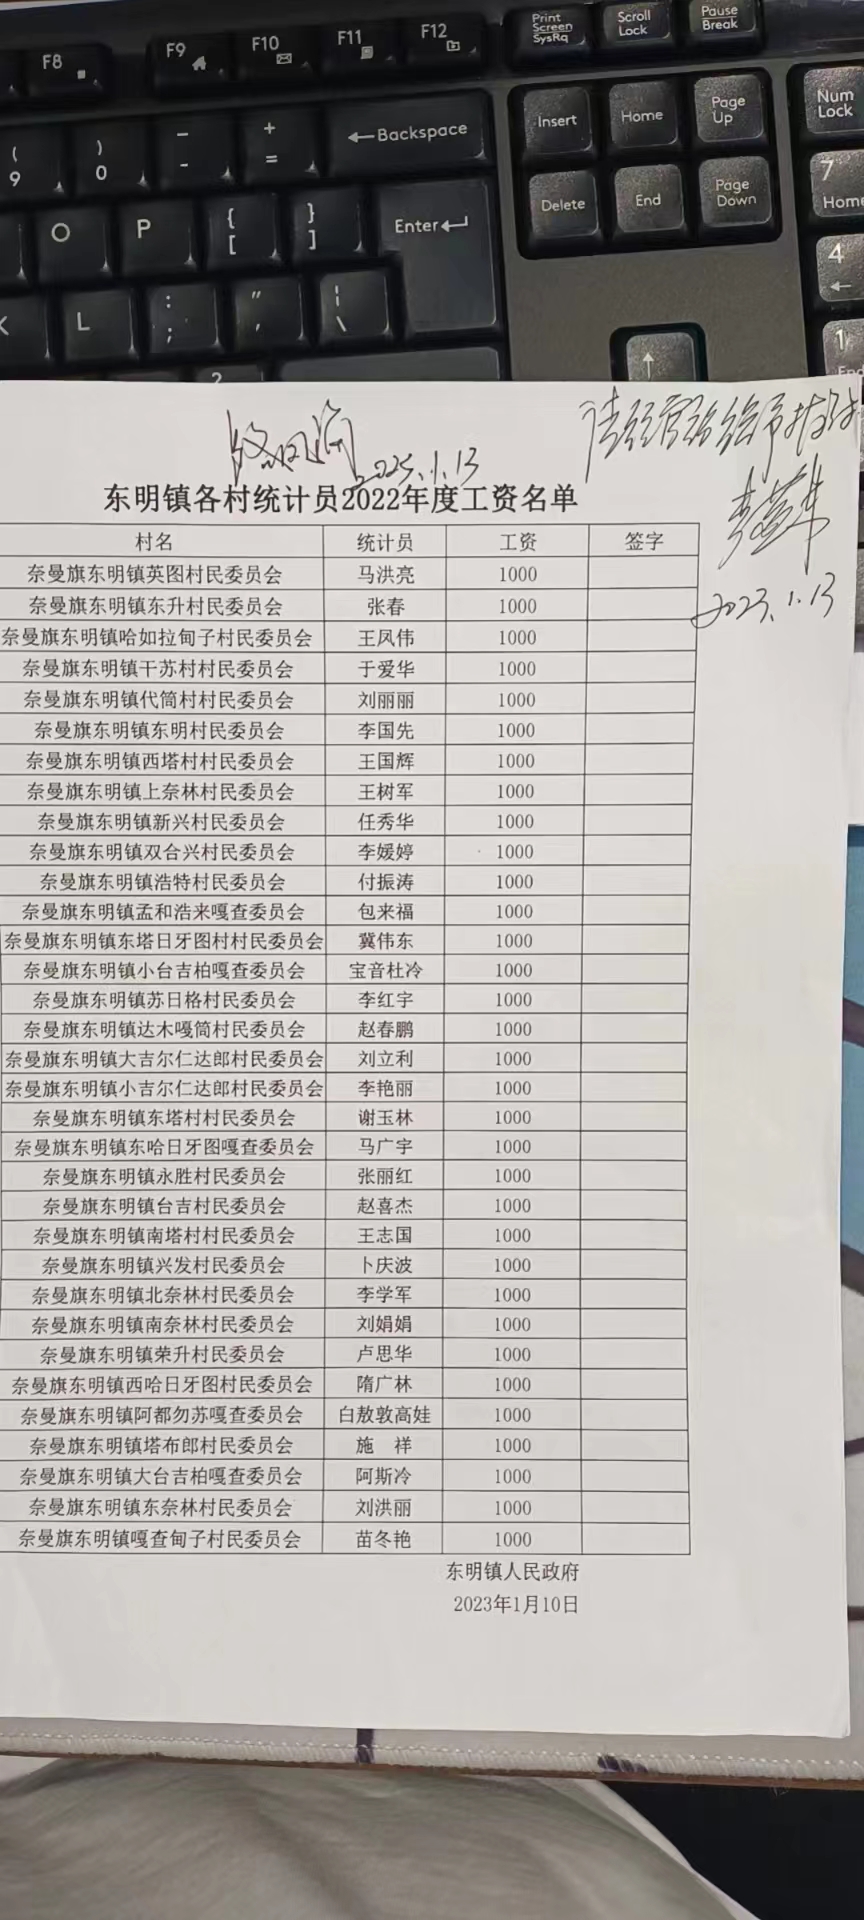 F8 F9 F10 F11 F12 Print Screen SysRq Scroll Lock Pause Break
( 9 ) 0 - - + = ←Backspace Insert Home Page Up Num Lock
O P { [ } ] Enter↵ Delete End Page Down 7 Home
K L : ; " ' ¦ \ 4 ←
? ↑ 1 End
2023.1.13
2023.1.13
东明镇各村统计员2022年度工资名单
村名 统计员 工资 签字
奈曼旗东明镇英图村民委员会 马洪亮 1000
奈曼旗东明镇东升村民委员会 张春 1000
奈曼旗东明镇哈如拉甸子村民委员会 王凤伟 1000
奈曼旗东明镇干苏村村民委员会 于爱华 1000
奈曼旗东明镇代筒村村民委员会 刘丽丽 1000
奈曼旗东明镇东明村民委员会 李国先 1000
奈曼旗东明镇西塔村村民委员会 王国辉 1000
奈曼旗东明镇上奈林村民委员会 王树军 1000
奈曼旗东明镇新兴村民委员会 任秀华 1000
奈曼旗东明镇双合兴村民委员会 李媛婷 1000
奈曼旗东明镇浩特村民委员会 付振涛 1000
奈曼旗东明镇孟和浩来嘎查委员会 包来福 1000
奈曼旗东明镇东塔日牙图村村民委员会 冀伟东 1000
奈曼旗东明镇小台吉柏嘎查委员会 宝音杜冷 1000
奈曼旗东明镇苏日格村民委员会 李红宇 1000
奈曼旗东明镇达木嘎筒村民委员会 赵春鹏 1000
奈曼旗东明镇大吉尔仁达郎村民委员会 刘立利 1000
奈曼旗东明镇小吉尔仁达郎村民委员会 李艳丽 1000
奈曼旗东明镇东塔村村民委员会 谢玉林 1000
奈曼旗东明镇东哈日牙图嘎查委员会 马广宇 1000
奈曼旗东明镇永胜村民委员会 张丽红 1000
奈曼旗东明镇台吉村民委员会 赵喜杰 1000
奈曼旗东明镇南塔村村民委员会 王志国 1000
奈曼旗东明镇兴发村民委员会 卜庆波 1000
奈曼旗东明镇北奈林村民委员会 李学军 1000
奈曼旗东明镇南奈林村民委员会 刘娟娟 1000
奈曼旗东明镇荣升村民委员会 卢思华 1000
奈曼旗东明镇西哈日牙图村民委员会 隋广林 1000
奈曼旗东明镇阿都勿苏嘎查委员会 白敖敦高娃 1000
奈曼旗东明镇塔布郎村民委员会 施 祥 1000
奈曼旗东明镇大台吉柏嘎查委员会 阿斯冷 1000
奈曼旗东明镇东奈林村民委员会 刘洪丽 1000
奈曼旗东明镇嘎查甸子村民委员会 苗冬艳 1000
东明镇人民政府
2023年1月10日